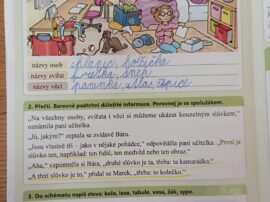 názvy osob chlapec, holčička
názvy zvířat
názvy věcí
2. Přečti. Barevně podtrhni důležité informace. Porovnej je se spolužákem.
„Na všechny osoby, zvířata i věci si můžeme ukázat kouzelným slůvkem,“
oznámila paní učitelka.
„Jů, jakým?“ zeptala se zvídavě Bára.
„Jsou vlastně tři – jako v nějaké pohádce,“ odpověděla paní učitelka. „První je
slůvko ten, například: ten řidič, ten medvěd nebo ten obraz.“
„Aha,“ vzpomněla si Bára, „druhé slůvko je ta, třeba: ta kamarádka.“
„A třetí slůvko je to,“ přidal se Marek, „třeba: to kolečko.“
3. Do schématu napiš slova: kolo, leze, tabule, vosa, žák, sype.